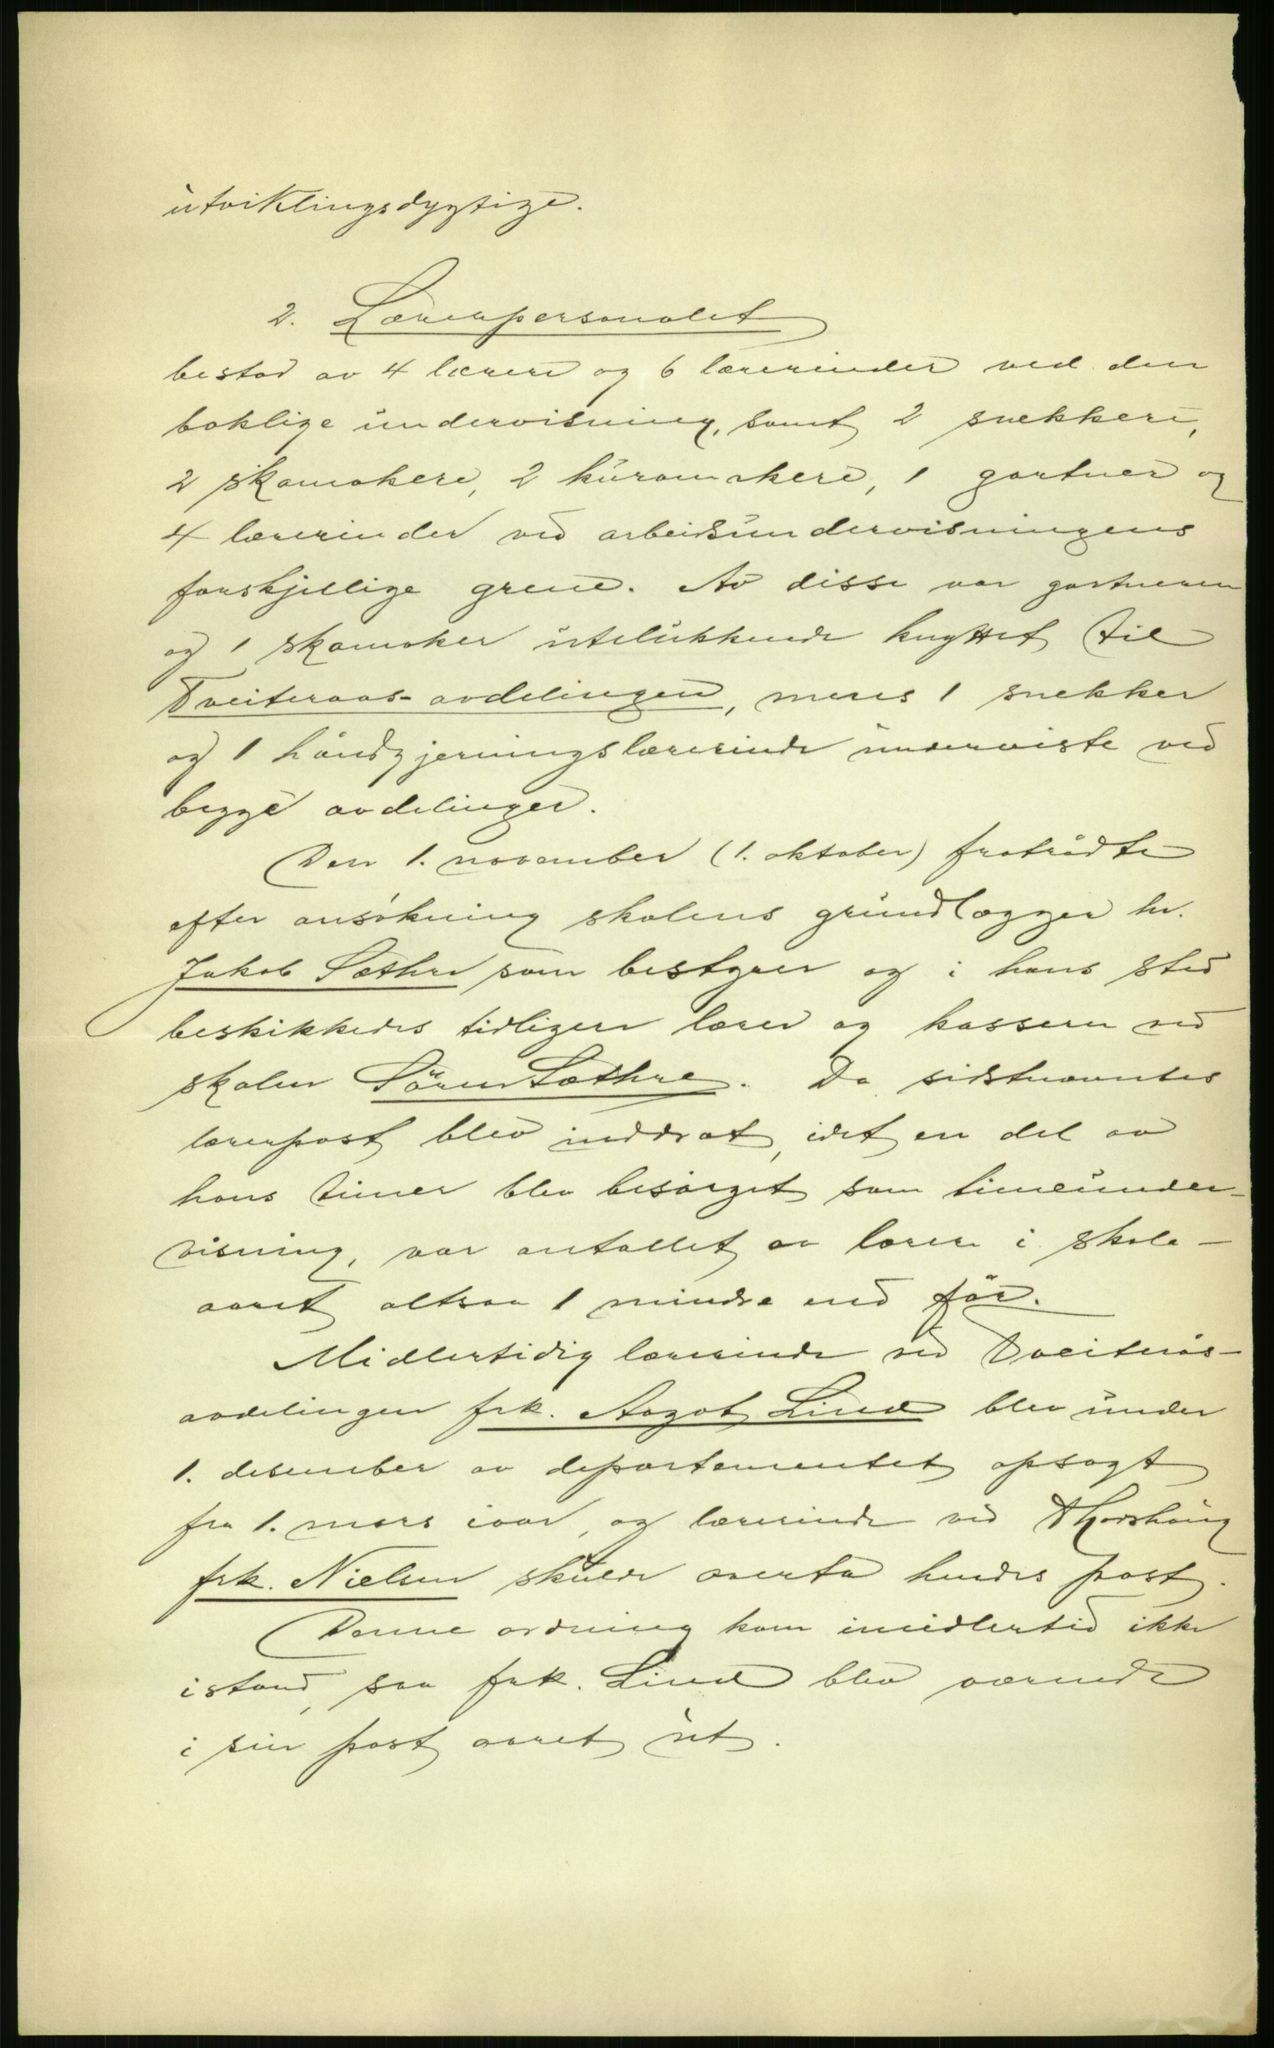 utviklingsdygtige.
2. Lærerpersonalet
bestod av 4 lærere og 6 lærerinder ved den
boklige undervisning, samt 2 snekkere,
2 skomakere, 2 kurvmakere, 1 gartner og
4 lærerinder ved arbeidsundervisningens
forskjellige grene. Av disse var gartneren
og 1 skomaker utelukkende knyttet til
Tveiteraas-avdelingen, mens 1 snekker
og 1 håndgjerningslærerinde underviste ved
begge avdelinger.
Den 1. november (1. oktober) fratrådte
efter ansøkning skolens grundlægger hr.
Jakob Sæthre som bestyrer og i hans sted
beskikkedes tidligere lærer og kasserer ved
skolen Sören Sæthre. Da sidstnævntes
lærerpost blev inddrat, idet en del av
hans timer blev besørget som timeunder-
visning, var antallet av lærere i skole-
aaret altsaa 1 mindre end för.
Midlertidig lærerinde ved Tveiterås-
avdelingen frk. Aagot Lind blev under
1. desember av departementet opsagt
fra 1. mars iaar, og lærerinde ved Thorshaug
frk. Nielsen skulde overta hendes post.
Denne ordning kom imidlertid ikke
istand, saa frk. Lind blev værende
i sin post aaret ut.